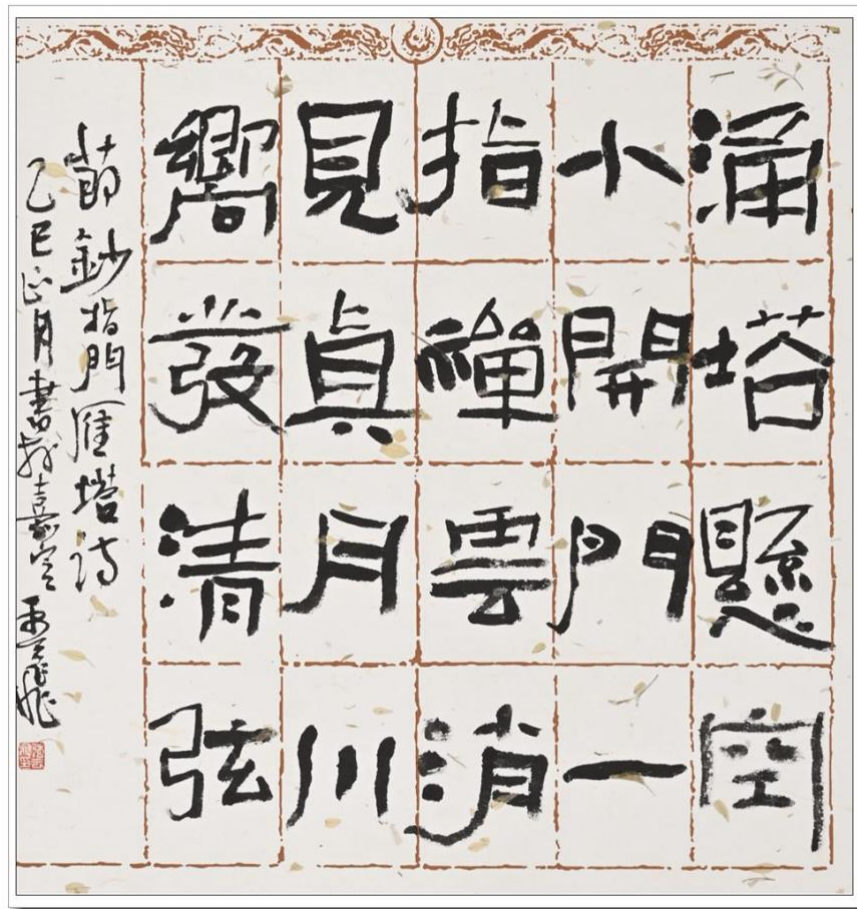 涌塔懸空
小開門一
指禪雲消
見真月川
嚮發清弦
節鈔指門雁塔詩
乙巳正月書於嘉定